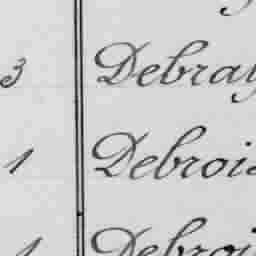 3 Debray
1 Debrois
1 Debroi